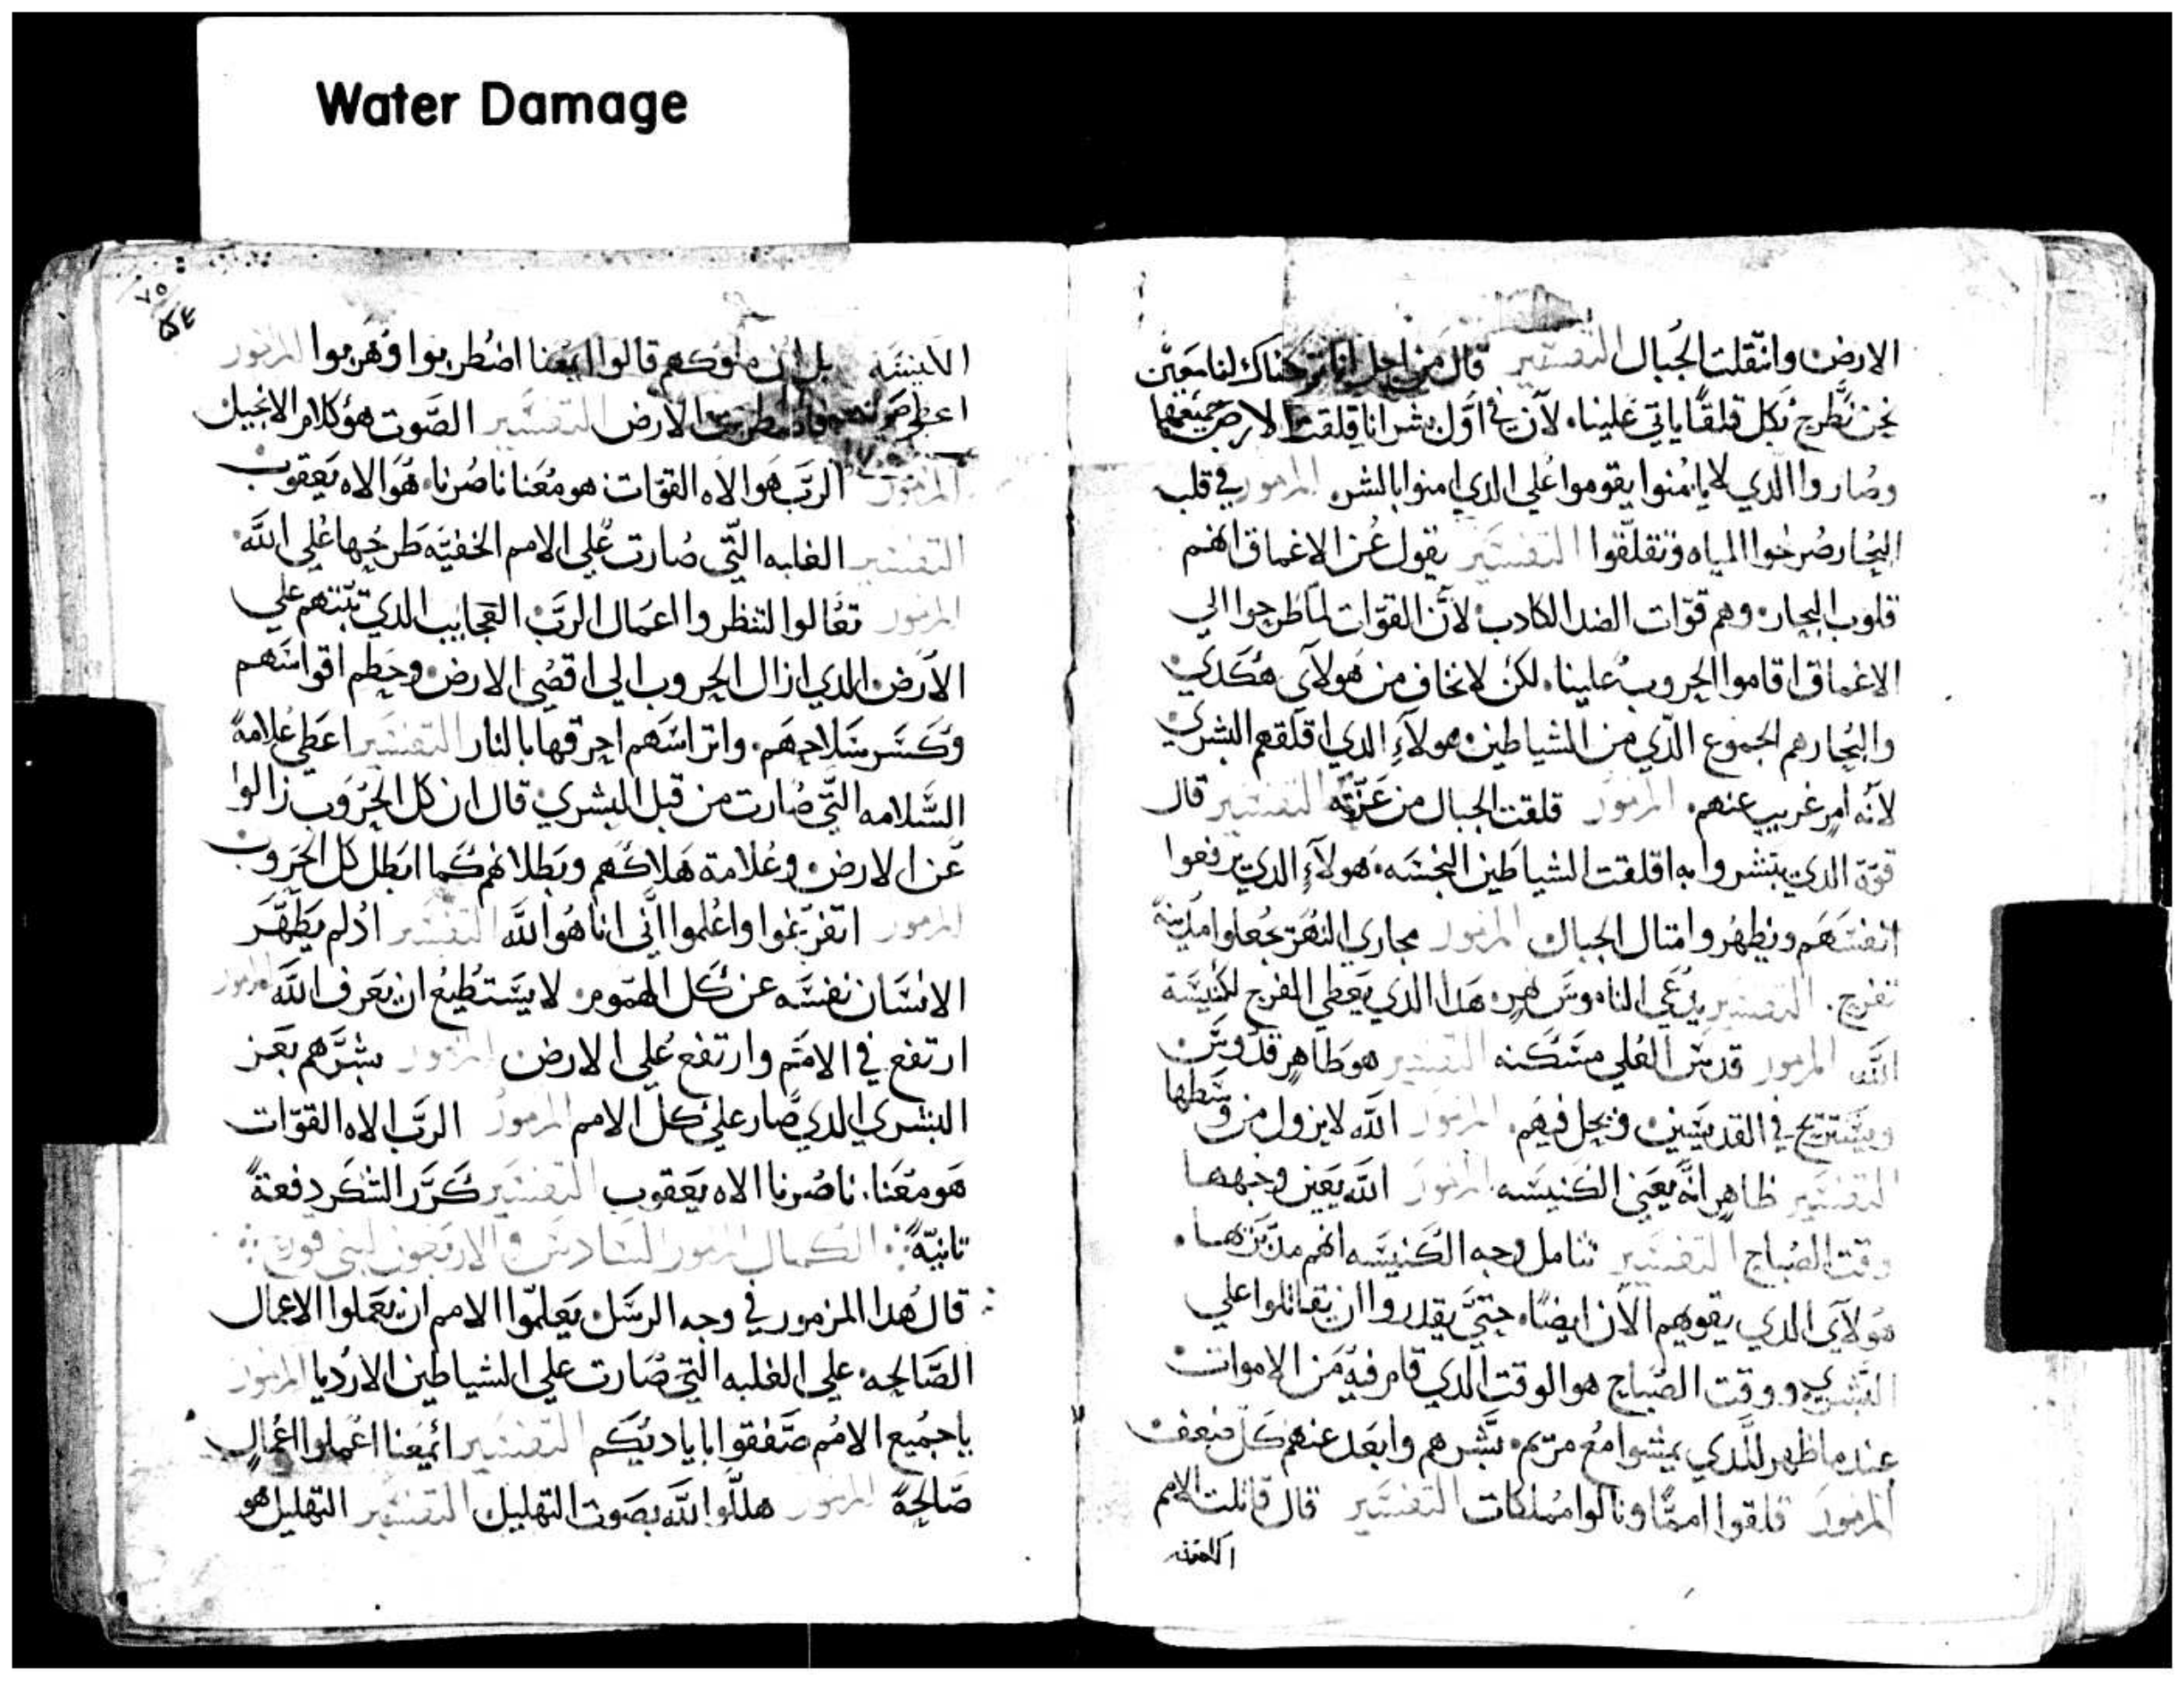 Water Damage
الارض وانتقلت الجبال التفسير قال من اجل انا هناك لنا معين
نحن نطرح كل قلقا ياتي علينا لان في اول بشرانا قلقت الارض جميعها
وصاروا الدي لا يامنوا يقوموا علي الدي امنوا بالبشري المزمور في قلب
البحار صرخوا المياه وتقلقوا التفسير يقول عن الاعماق انهم
قلوب البحار وهم قوات الضد الكادب لان القوات لما طرحوا الي
الاعماق اقاموا الحروب علينا لكن لا نخاف من هولاي هكدي
والبحار هم الجموع الدي من الشياطين هولاء الدي اقلقهم البشري
لانه امر غريب عنهم المزمور قلقت الجبال من عزته التفسير قال
قوة الدي بتشروا به اقلقت الشياطين النجسه هولاء الدي يرفعوا
انفسهم ويظهروا امتال الجبال المزمور مجاري النهر يجعلوا مدينة
تفرح التفسير يدعي الناموس نهر هدا الدي يعطي الفرح لكنيسة
الله المزمور قدس العلي مسكنه التفسير هو طاهر قدوس
ويستريح في القديسين ويحل فيهم المزمور الله لا يزول من وسطها
التفسير ظاهر انه يعني الكنيسه المزمور الله يعين وجهها
وقت الصباح التفسير تنامل وجه الكنيسه انهم مدبرنها
هولاي الدي يقويهم الان ايضا حتي يقدروا ان يقاتلوا علي
البشري ووقت الصباح هو الوقت الدي قام فيه من الاموات
عندما ظهر للدي يمشوا مع مريم بشرهم وابعد عنهم كل ضعف
المزمور قلقوا امما ومالوا مملكات التفسير قال قاتلت الامم
الكنيسه بل ان ملوكهم قالوا ايمعنا اضطربوا وهربوا المزمور
اعطي صوته فاضطربت الارض التفسير الصوت هو كلام الانجيل
المزمور الرب هو الاه القوات هو معنا ناصرنا هو الاه يعقوب
التفسير الغلبه التي صارت علي الامم الخفيه طرحها علي الله
المزمور تعالوا لتنظروا اعمال الرب العجايب الدي تبتهم علي
الارض الدي ازال الحروب الي اقصي الارض وحطم اقواسهم
وكسر سلاحهم واتراسهم احرقها بالنار التفسير اعطي علامة
السلامه التي صارت من قبل البشري قال ان كل الحروب زالوا
عن الارض وعلامة هلاكهم وبطلانهم كما ابطل كل الحروب
المزمور اتفرغوا واعلموا اني انا هو الله التفسير ادلم يطهر
الانسان نفسه عن كل الهموم لا يستطيع ان يعرف الله المزمور
ارتفع في الامم وارتفع علي الارض المزمور بشرهم بعز
البشري الدي صار علي كل الامم المزمور الرب الاه القوات
هو معنا ناصرنا الاه يعقوب التفسير كرر الشكر دفعة
تانية الكمال المزمور السادس والاربعون لبني قورح
قال هدا المزمور في وجه الرسل يعلموا الامم ان يعملوا الاعمال
الصالحه علي الغلبه التي صارت علي الشياطين الارديا المزمور
يا جميع الامم صفقوا باياديكم التفسير ايمعنا اعملوا اعمال
صالحة المزمور هللوا الله بصوت التهليل التفسير التهليل هو